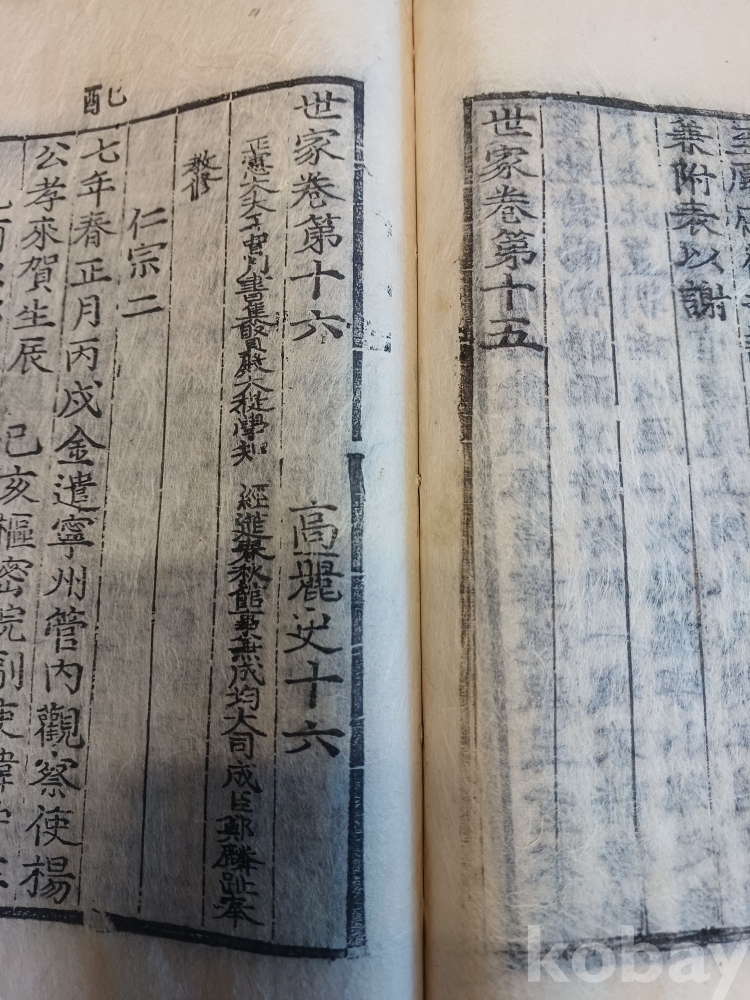 兼附表以謝
世家卷第十五
世家卷第十六 高麗史十六
正憲大夫工曹判書集賢殿大提學知 經筵春秋館事兼成均大司成臣鄭麟趾奉
敎修
仁宗二
七年春正月丙戌金遣寧州管內觀察使楊
公孝來賀生辰 己亥樞密院副使
kobay